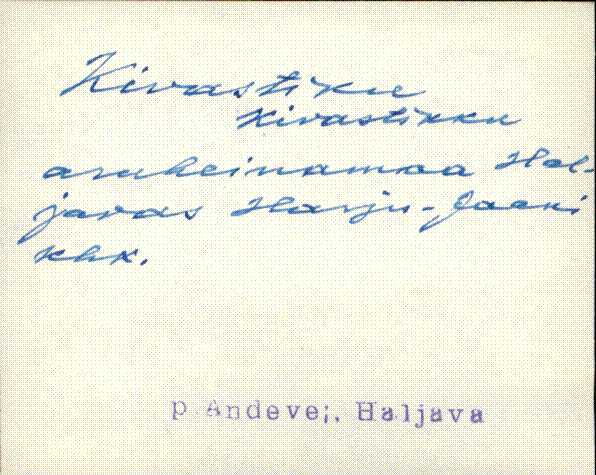 Kivastiku
Kivastikku
aruheinamaa Hal-
javas Harju-Jaani
khk.
p Andevei, Haljava